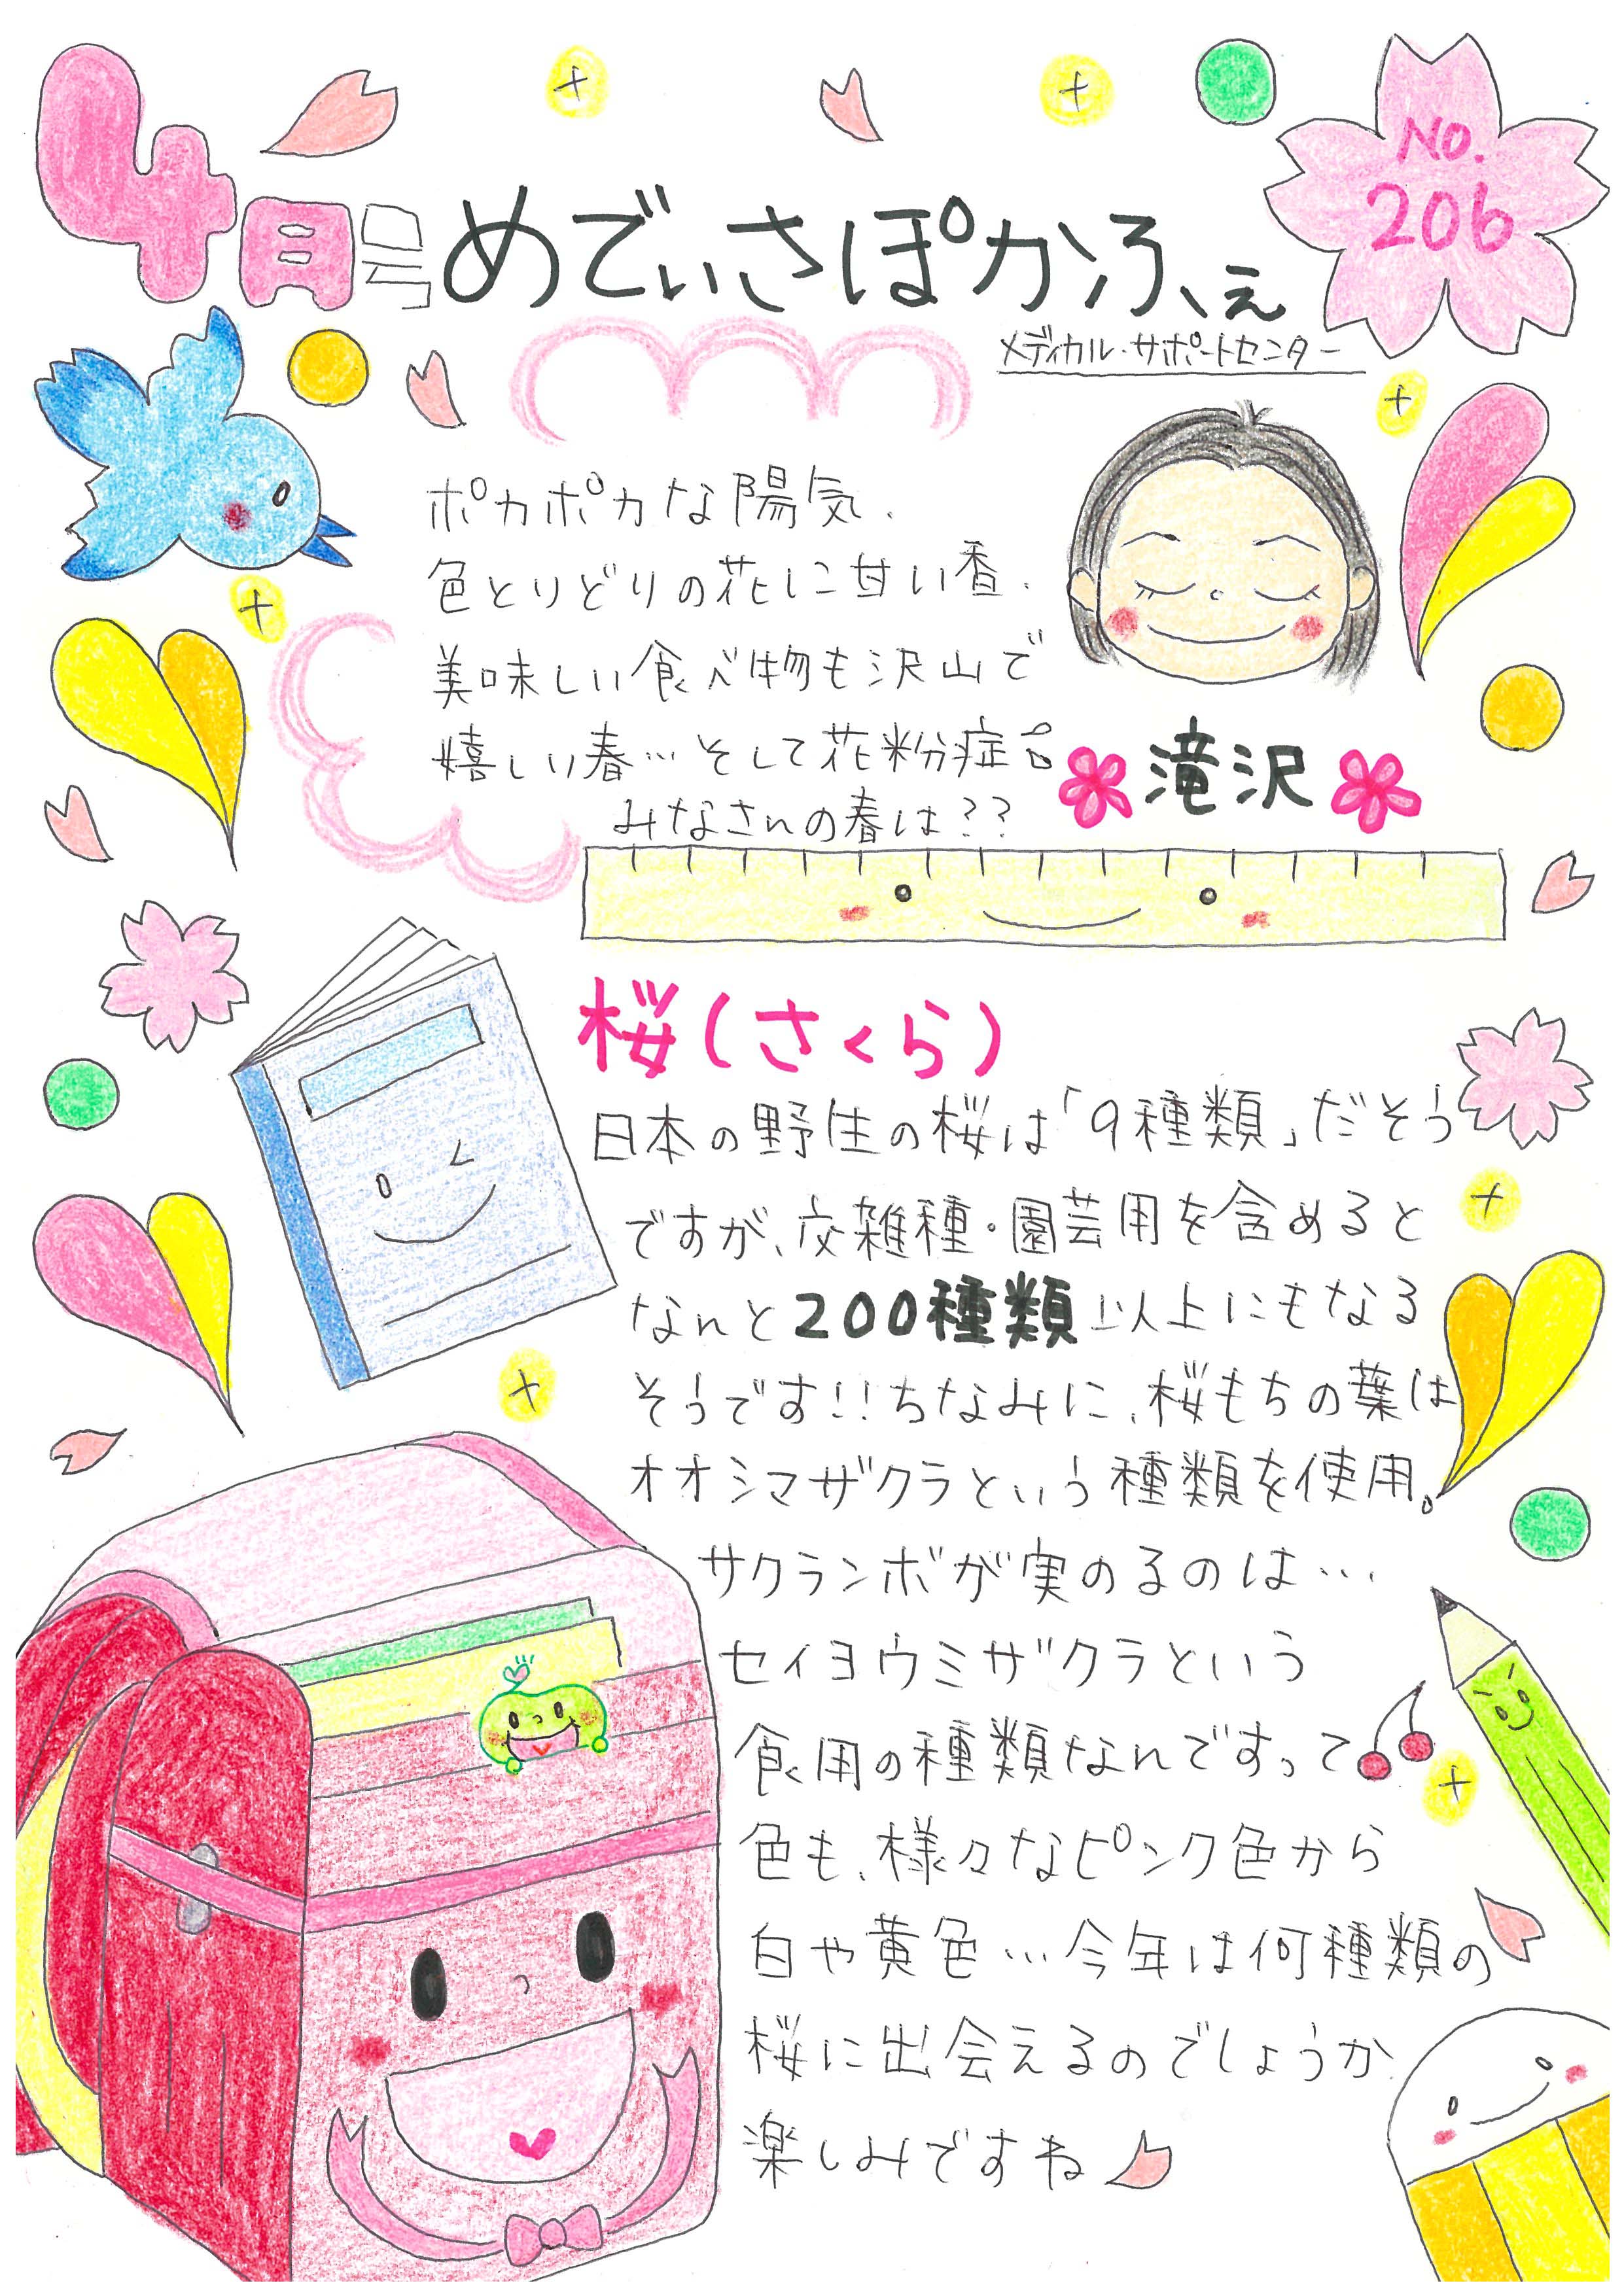 4月号 めでぃさぽかふぇ
No.
206
メディカル・サポートセンター
ポカポカな陽気、
色とりどりの花に甘い香、
美味しい食べ物も沢山で
嬉しい春…そして花粉症
みなさんの春は??
滝沢
桜(さくら)
日本の野生の桜は「9種類」だそう
ですが、交雑種・園芸用を含めると
なんと200種類以上にもなる
そうです!!ちなみに、桜もちの葉は
オオシマザクラという種類を使用。
サクランボが実のるのは…
セイヨウミザクラという
食用の種類なんですって
色も、様々なピンク色から
白や黄色…今年は何種類の
桜に出会えるのでしょうか
楽しみですね